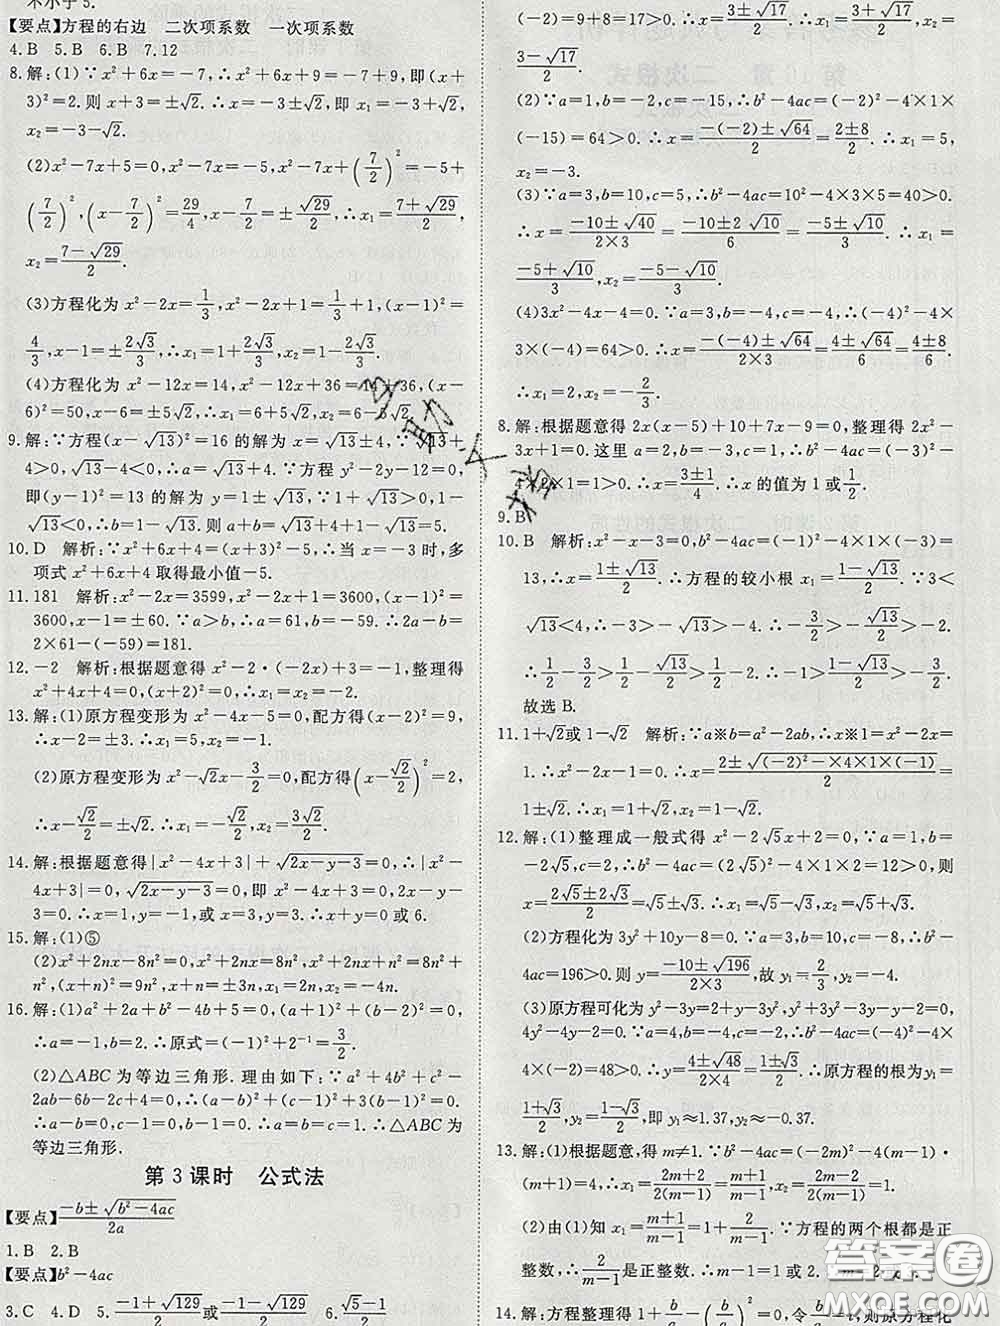 不小于5.
【要点】方程的右边　二次项系数　一次项系数
4.B　5.B　6.B　7.12
8.解:(1)∵x²+6x=-7,∴x²+6x+9=-7+9,即(x+
3)²=2.则x+3=±√2.∴x=-3±√2,即x₁=-3+√2,
x₂=-3-√2.
(2)x²-7x+5=0,x²-7x=-5,x²-7x+(7/2)²=-5+
(7/2)²,(x-7/2)²=29/4,x-7/2=±√29/2,∴x₁=(7+√29)/2,
x₂=(7-√29)/2.
(3)方程化为x²-2x=1/3,x²-2x+1=1/3+1,(x-1)²=
4/3,x-1=±2√3/3,∴x₁=1+2√3/3,x₂=1-2√3/3.
(4)方程化为x²-12x=14,x²-12x+36=14+36,(x-
6)²=50,x-6=±5√2,∴x₁=6+5√2,x₂=6-5√2.
9.解:∵方程(x-√13)²=16的解为x=√13±4,∵√13+
4>0,√13-4<0,∴a=√13-4.∵方程y²-2y-12=0,
即(y-1)²=13的解为y=1±√13.∵1+√13>0,1-
√13<0,∴b=1-√13,∴a-b=√13-4-1+√13=2√13-5.
10.D　解析:∵x²+6x+4=(x+3)²-5,∴当x=-3时,多
项式x²+6x+4取得最小值-5.
11.181　解析:x²-2x=3599,x²-2x+1=3600,(x-1)²=
3600,x-1=±60.∵a>b,∴a=61,b=-59.∴2a-b=
2×61-(-59)=181.
12.-2　解析:根据题意得x²-2·(-2x)+3=-1,整理得
x²+4x+4=0,(x+2)²=0,∴x₁=x₂=-2.
13.解:(1)原方程变形为x²-4x-5=0,配方得(x-2)²=9,
∴x-2=±3.∴x₁=5,x₂=-1.
(2)原方程变形为x²-√2x-3/2=0,配方得(x-√2/2)²=2,
∴x-√2/2=±√2.∴x₁=-√2/2,x₂=3√2/2.
14.解:根据题意得|x²-4x+3|+√(2x-y-3)=0,∴|x²-
4x+3|=0,√(2x-y-3)=0,即x²-4x+3=0,2x-y-
3=0.∴x=1,y=-1,或x=3,y=3.∴x+y=0或6.
15.解:(1)⑤
(2)x²+2nx-8n²=0,x²+2nx=8n²,x²+2nx+n²=8n²+
n²,(x+n)²=9n²,x+n=±3n,x₁=2n,x₂=-4n.
16.解:(1)a²+2a+b²-4b+5=0,(a+1)²+(b-2)²=0,
∴a=-1,b=2.∴原式=(-1)²+2⁻¹=3/2.
(2)△ABC为等边三角形.理由如下:∵a²+4b²+c²-
2ab-6b-2c+4=0,∴(a-b)²+(c-1)²+3(b-1)²=0.
∴a-b=0,c-1=0,b-1=0.∴a=b=c=1.∴△ABC为
等边三角形.
第3课时　公式法
【要点】(-b±√(b²-4ac))/2a
1.B　2.B
【要点】b²-4ac
3.C　4.D　5.(-1+√129)/2或(-1-√129)/2　6.(√5-1)/2
(-2)=9+8=17>0.∴x=(3±√17)/2.∴x₁=(3+√17)/2,x₂=
(3-√17)/2.
(2)∵a=1,b=-2,c=-15,∴b²-4ac=(-2)²-4×1×
(-15)=64>0.∴x=(-(-2)±√64)/2=(2±8)/2.∴x₁=5,
x₂=-3.
(3)∵a=3,b=10,c=5,∴b²-4ac=10²-4×3×5=40>0.
∴x=(-10±√40)/(2×3)=(-10±2√10)/6=(-5±√10)/3.∴x₁=
(-5+√10)/3,x₂=(-5-√10)/3.
(4)3x²-4x-4=0.∵a=3,b=-4,c=-4,∴(-4)²-4×
3×(-4)=64>0.∴x=(-(-4)±√64)/(2×3)=(4±8)/6.
∴x₁=2,x₂=-2/3.
8.解:根据题意得2x(x-5)+10+7x-9=0,整理得2x²-
3x+1=0.这里a=2,b=-3,c=1,∴b²-4ac=(-3)²-
4×2×1=1>0.∴x=(3±1)/4.∴x的值为1或1/2.
9.B
10.B　解析:x²-x-3=0,b²-4ac=(-1)²-4×1×(-3)=
13,∴x=(1±√13)/2.∴方程的较小根x₁=(1-√13)/2.∵3<
√13<4,∴-3>-√13>-4.∴-3/2>-√13/2>-2.
∴1/2-3/2>1/2-√13/2>1/2-2.∴-1>(1-√13)/2>-3/2.
故选B.
11.1+√2或1-√2　解析:∵a※b=a²-2ab,∴x※1=x²-2x=
1.∴x²-2x-1=0.∴x=(2±√((-2)²-4×1×(-1)))/2=
1±√2.∴x₁=1+√2,x₂=1-√2.
12.解:(1)整理成一般式得x²-2√5x+2=0,∵a=1,b=
-2√5,c=2,∴b²-4ac=(2√5)²-4×1×2=12>0,则
x=(2√5±2√3)/2=√5±√3.∴x₁=√5+√3,x₂=√5-√3.
(2)方程化为3y²+10y-8=0.∵a=3,b=10,c=-8,∴b²-
4ac=196>0.则y=(-10±√196)/(2×3),故y₁=2/3,y₂=-4.
(3)原方程可化为y²-y+2y-2=3y²-3y,∴
4y²-4y-2=0.∵a=4,b=-4,c=-2,∴b²-4ac=(-4)²-4×
4×(-2)=48>0.∴y=(4±√48)/(2×4)=(1±√3)/2.∴原方程的根为y₁=
(1+√3)/2,y₂=(1-√3)/2,即y₁≈1.37,y₂≈-0.37.
13.解:(1)根据题意,得m≠1.∵b²-4ac=(-2m)²-4(m-1)·
(m+1)=4,∴x₁=(2m+2)/(2(m-1))=(m+1)/(m-1),x₂=(2m-2)/(2(m-1))=1.
(2)由(1)知x₁=(m+1)/(m-1)=1+2/(m-1).∵方程的两个根都是正
整数,∴2/(m-1)是正整数.∴m-1=1或2.∴m=2或3.
14.解:方程整理得1+b/a-(b/a)²=0,令b/a=t,则原方程化
答案圈
MXQE.COM